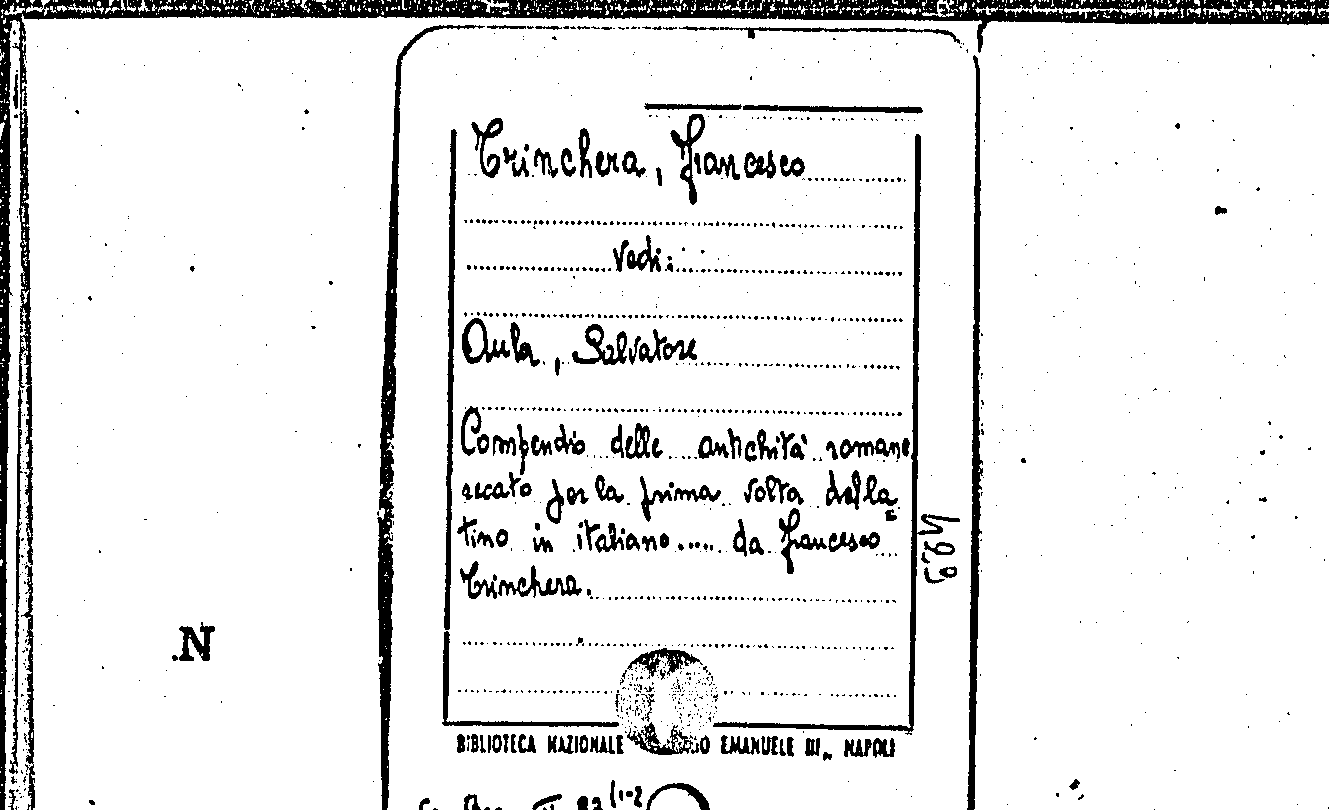 Trinchera, Francesco
Vedi:
Aula, Salvatore
Compendio delle antichità romane
recato per la prima volta dal la
tino in italiano..... da Francesco
Trinchera.
BIBLIOTECA NAZIONALE EMANUELE III„ NAPOLI
.N